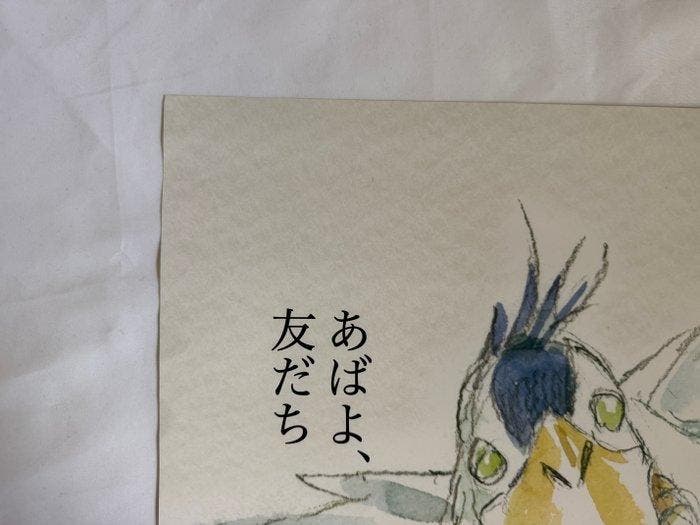 あばよ、
友だち